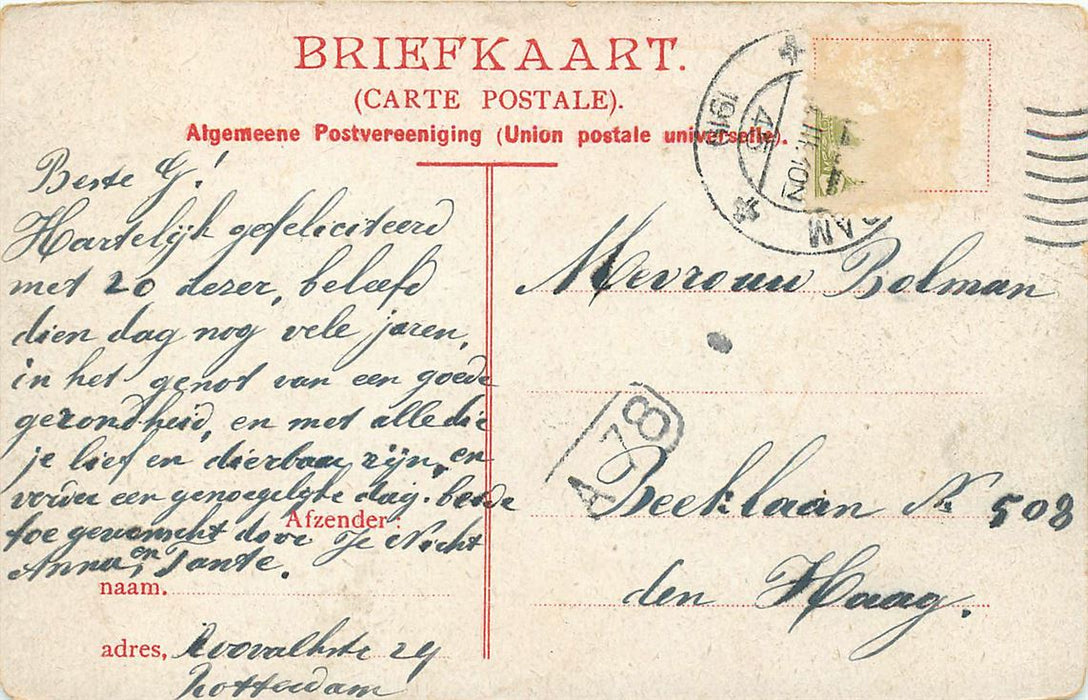 BRIEFKAART.
(CARTE POSTALE).
Algemeene Postvereeniging (Union postale universelle).
Beste G!
Hartelijk gefeliciteerd
met 20 dezer, beleef
dien dag nog vele jaren,
in het genot van een goede
gezondheid, en met alle die
je lief en dierbaar zijn, en
verder een genoegelijke dag. beide
toegewenscht door Je Nicht
Anna, en Tante.
Afzender:
naam.
adres,
29
Rotterdam
Mevrouw Bolman
Beeklaan No 508
den Haag.
A 78
4-5
1910
DAM